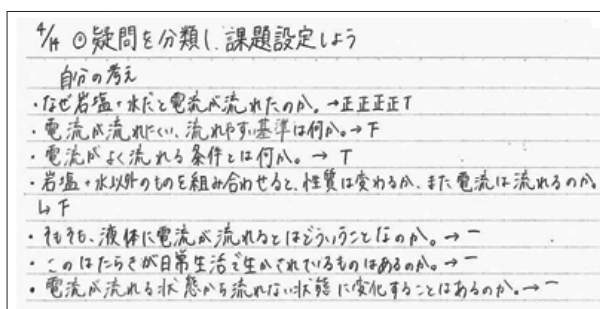 4/14 ◎疑問を分類し、課題設定しよう
自分の考え
・なぜ岩塩+水だと電流が流れたのか。→正正正正T
・電流が流れにくい、流れやすい基準は何か。→下
・電流がよく流れる条件とは何か。→ T
・岩塩+水以外のものを組み合わせると、性質は変わるか、また電流は流れるのか。
↳下
・そもそも、液体に電流が流れるとはどういうことなのか。→一
・このはたらきが日常生活で生かされているものはあるのか。→一
・電流が流れる状態から流れない状態に変化することはあるのか。→一